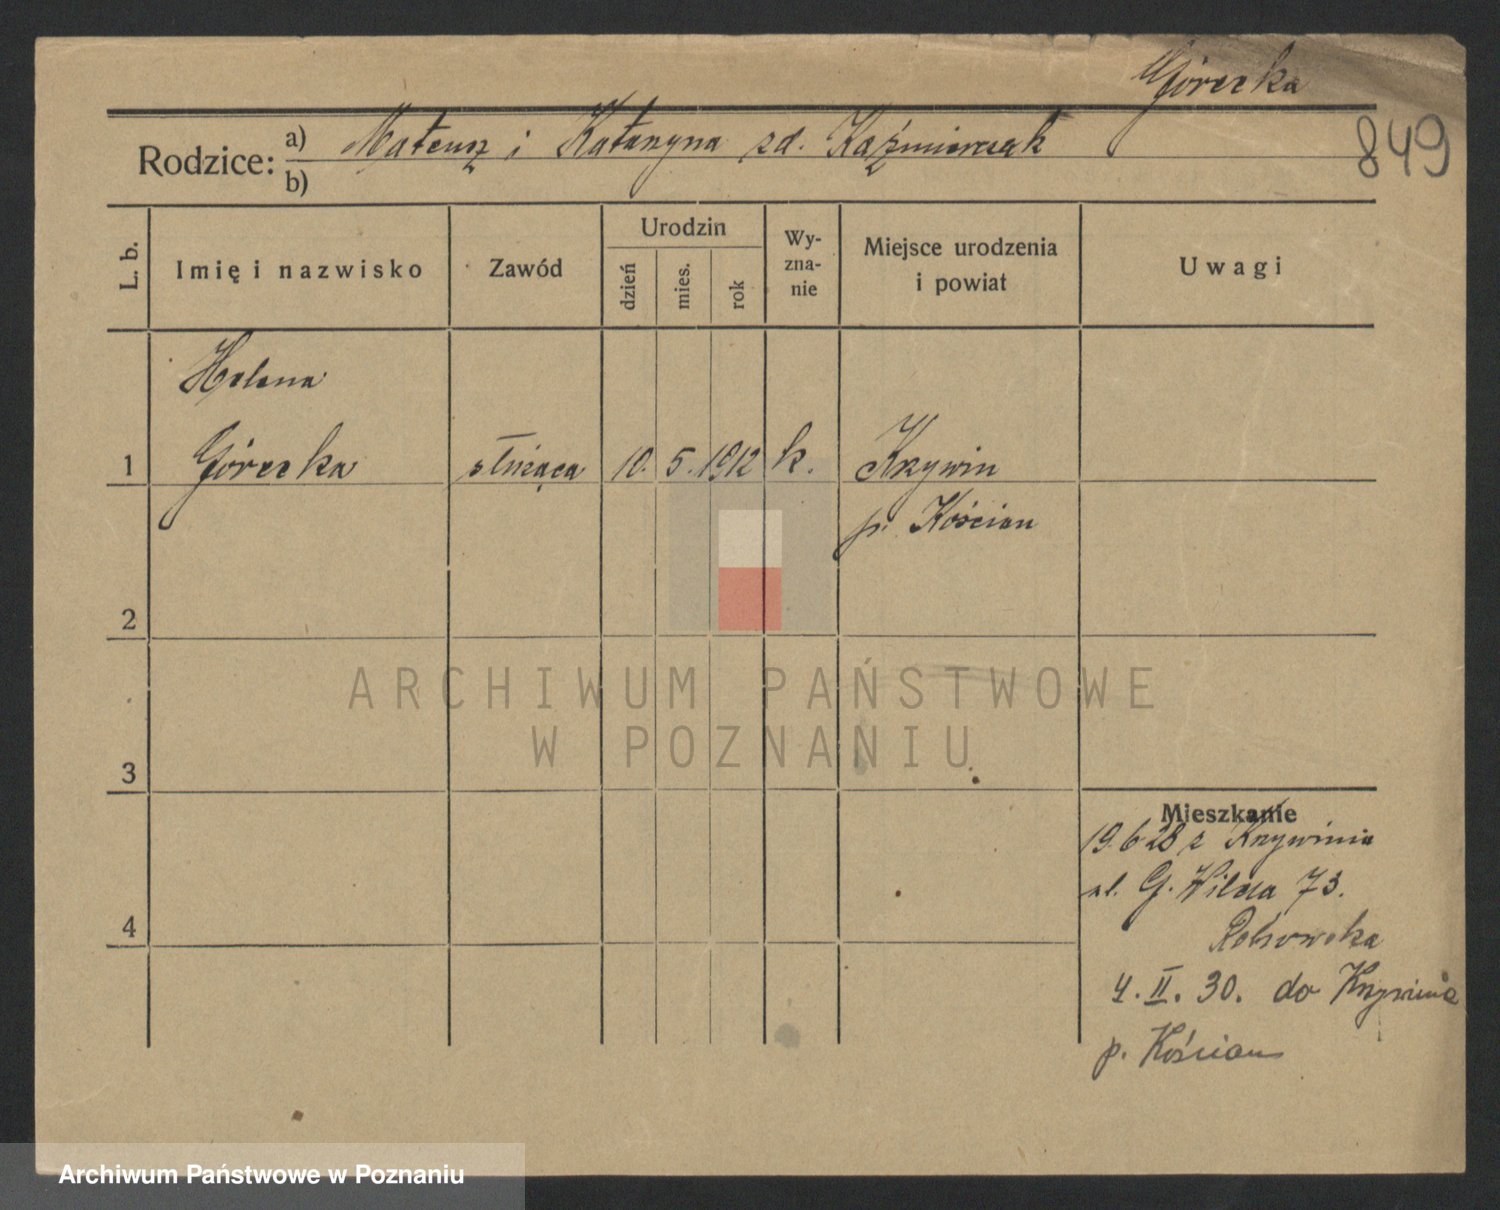 Górecka
849
Rodzice: a) Mateusz i Katarzyna zd. Kaźmierczak
b)
L. b.
Imię i nazwisko
Zawód
Urodzin
dzień
mies.
rok
Wy-
zna-
nie
Miejsce urodzenia
i powiat
Uwagi
Helena
1 Górecka służąca 10. 5. 1912 k. Krzywin
p. Kościan
2
3
4
ARCHIWUM PAŃSTWOWE
W POZNANIU
Mieszkanie
19.6 28 z Krzywinia
ul. G. Wilda 73.
4. II. 30. do Krzywinia
p. Kościan
Archiwum Państwowe w Poznaniu